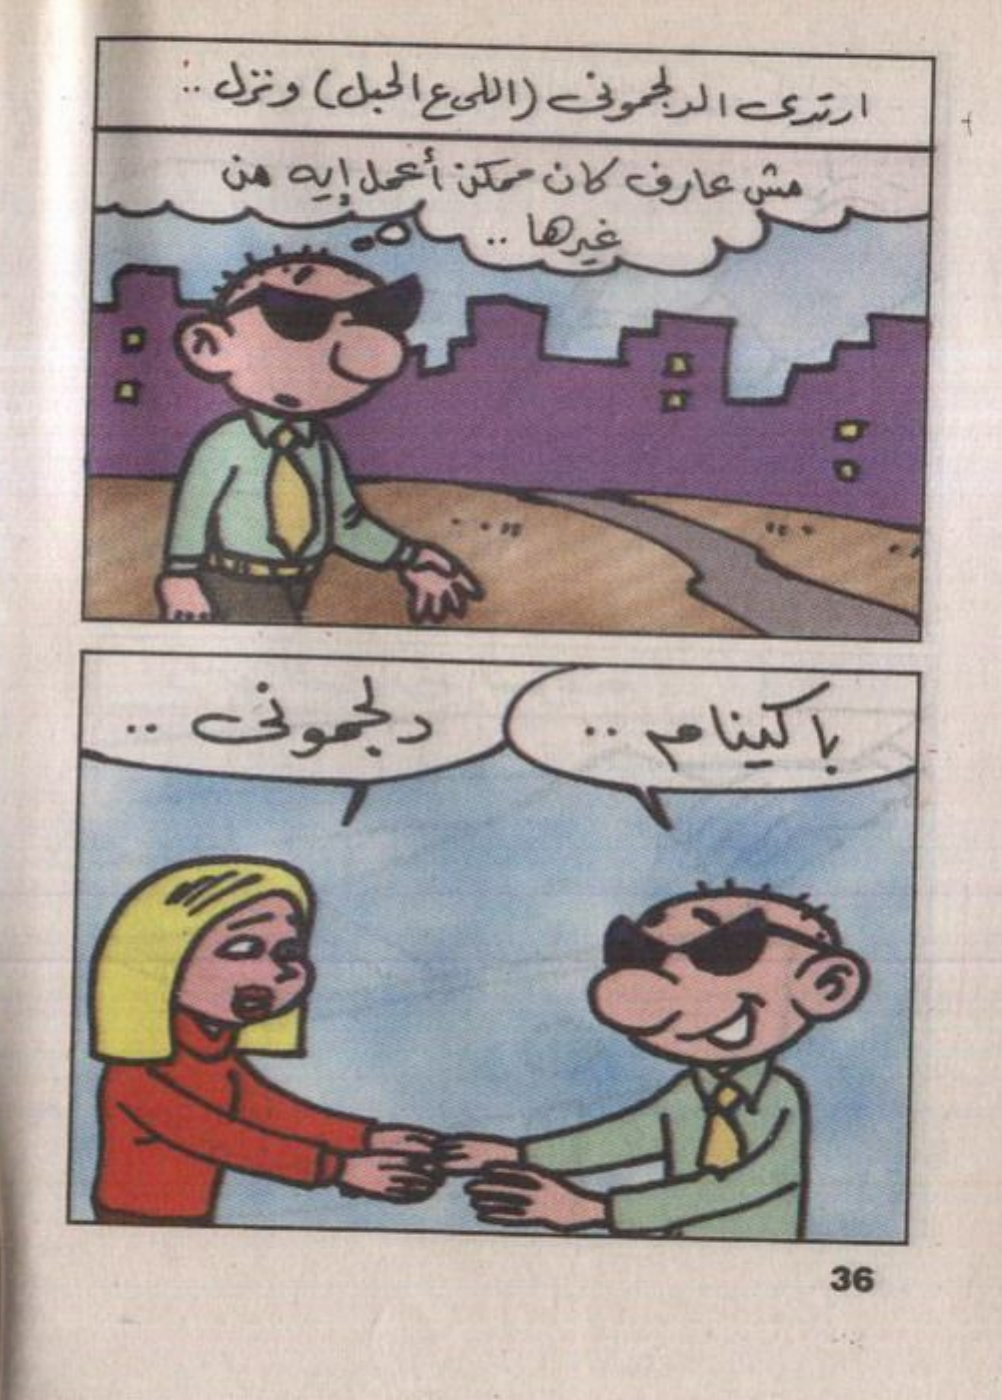 ارتدى الدلجمونى (اللى ع الحبل) ونزل ..
مش عارف كان ممكن أعمل إيه من
غيرها ..
باكينام ..
دلجمونى ..
36